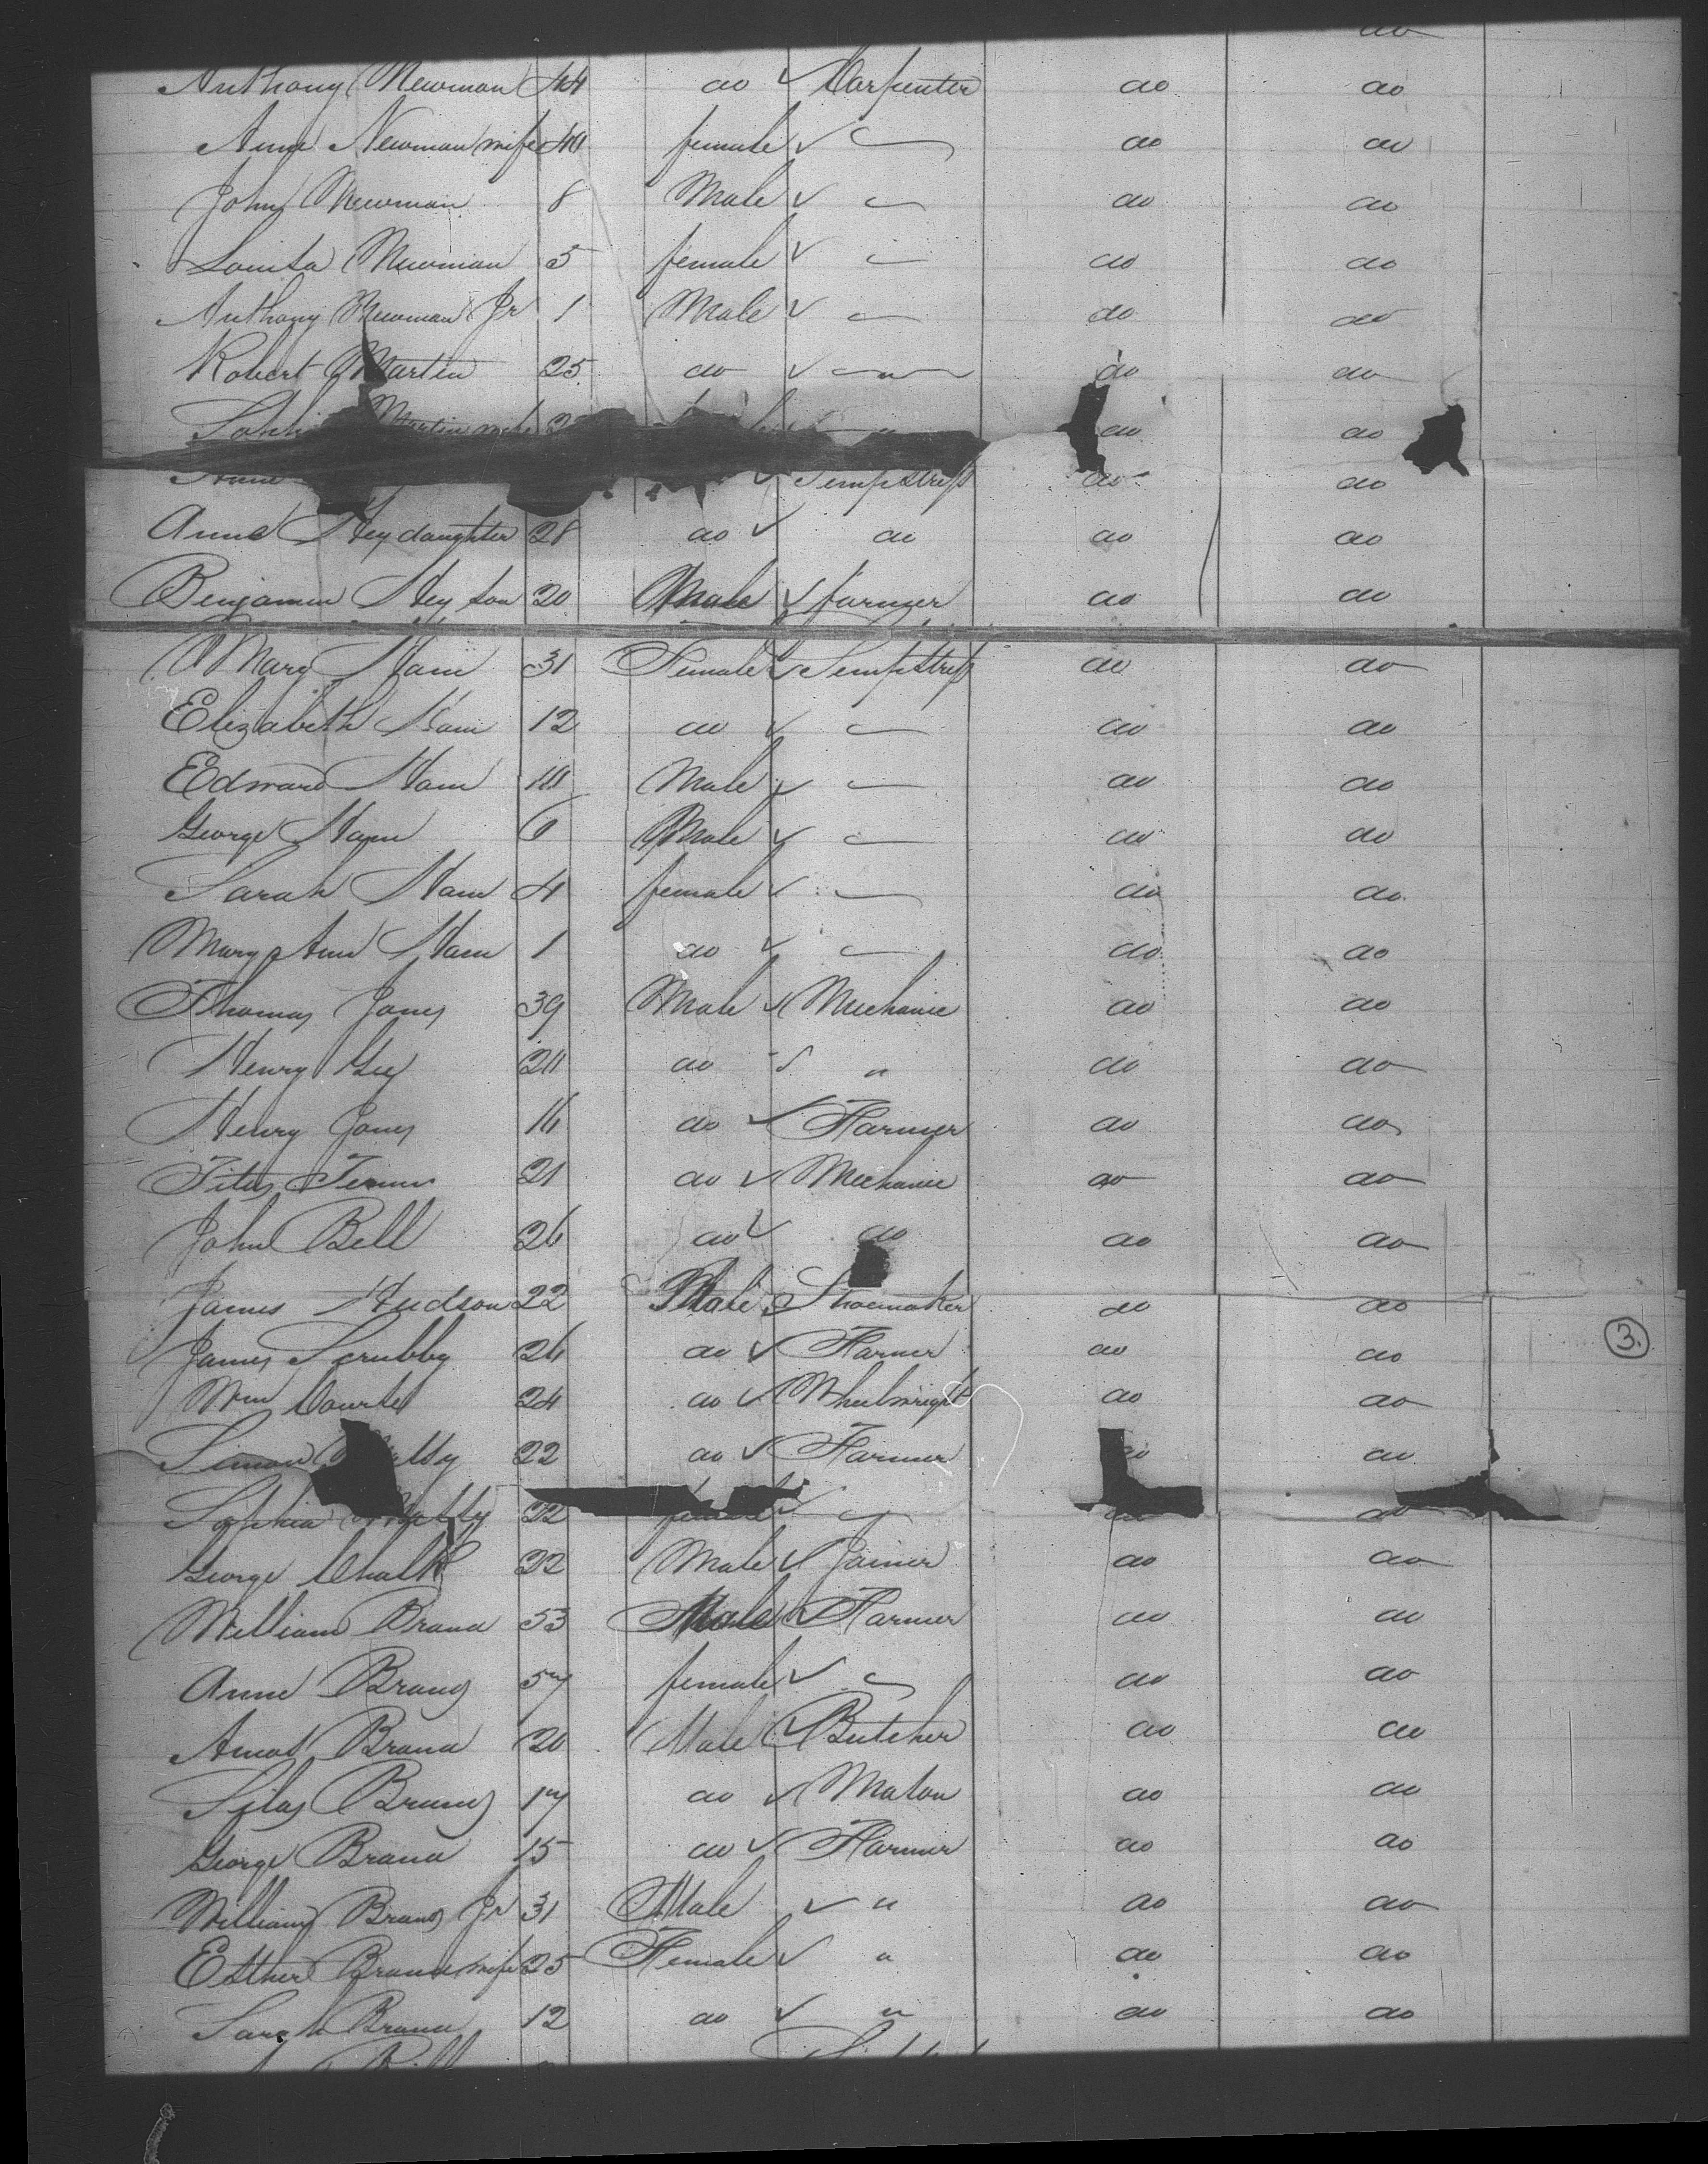 do
Anthony Newman 44 do ✓ Carpenter do do
Anne Newman wife 40 female ✓ do do
John Newman 8 Male ✓ do do
Louisa Newman 5 female ✓ do do
Anthony Newman Jr 1 Male ✓ do do
Robert Martin 25 do ✓ " do do
Martin wife ✓ " do do
✓ Sempstress do do
Anne Hey daughter 28 do ✓ do do do
Benjamin Hey son 20 Male ✓ farmer do do
Mary Ham 31 Female ✓ Sempstress do do
Elizabeth Ham 12 do ✓ do do
Edward Ham 10 Male ✓ do do
George Ham 6 Male ✓ do do
Sarah Ham 4 female ✓ do do
Mary Ann Ham 1 do ✓ do do
Thomas Jones 39 Male ✓ Mechanic do do
Henry Gey 20 do ✓ " do do
Henry Jones 16 do ✓ Farmer do do
Titus 21 do ✓ Mechanic do do
John Bell 26 do ✓ do do do
James Hudson 22 Male Shoemaker do do
James Scrubby 26 do ✓ Farmer do do
3.
Wm 24 do ✓ Wheelwright do do
Simon 22 do ✓ Farmer do do
Sophia 22 female ✓ do do
George Chalk 22 Male ✓ Joiner do do
William Brand 53 Male ✓ Farmer do do
Anne Brand 57 female ✓ do do
Amos Brand 20 Male ✓ Butcher do do
Silas Brand 17 do ✓ Mason do do
George Brand 15 do ✓ Farmer do do
William Brand Jr 31 Male ✓ " do do
Esther Brand wife 25 Female ✓ " do do
Sarah Brand 12 do ✓ " do do